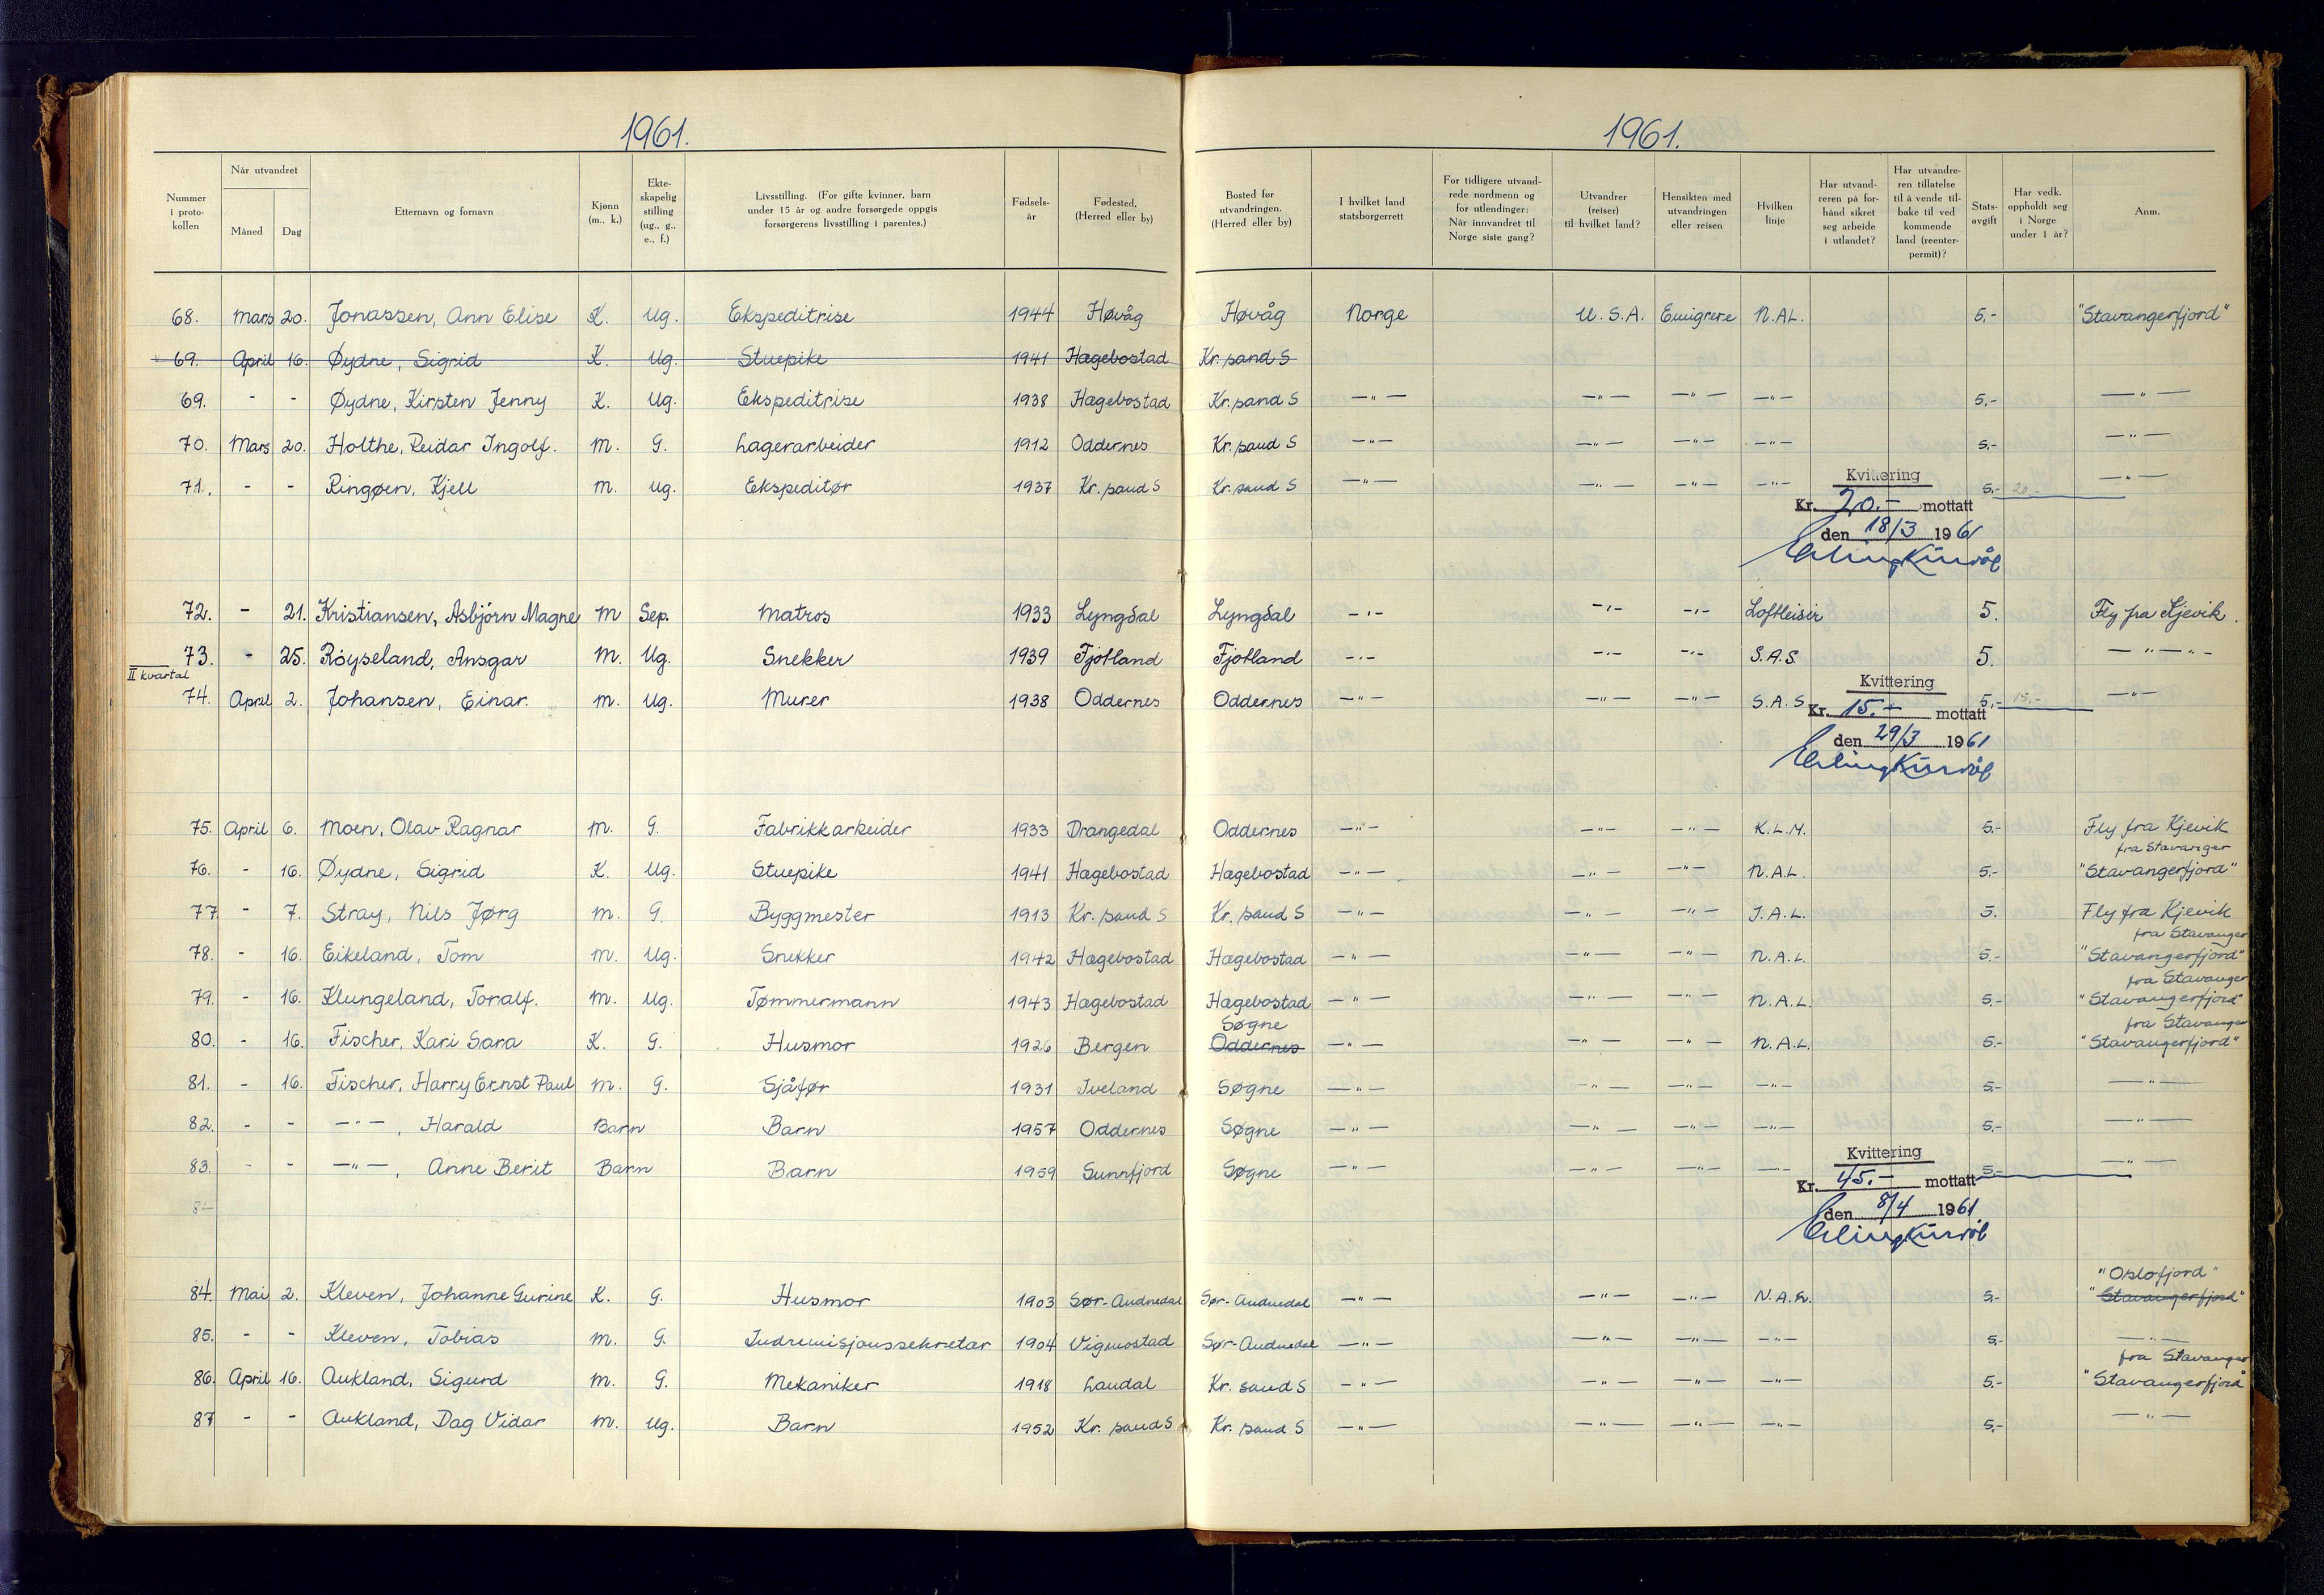 1961.
1961.
Nummer i proto-kollen | Når utvandret | Måned | Dag | Etternavn og fornavn | Kjønn (m., k.) | Ekte-skapelig stilling (ug., g., e., f.) | Livsstilling. (For gifte kvinner, barn under 15 år og andre forsørgede oppgis forsørgerens livsstilling i parentes.) | Fødsels-år | Fødested. (Herred eller by) | Bosted før utvandringen. (Herred eller by) | I hvilket land statsborgerrett | For tidligere utvand-rede nordmenn og for utlendinger: Når innvandret til Norge siste gang? | Utvandrer (reiser) til hvilket land? | Hensikten med utvandringen eller reisen | Hvilken linje | Har utvand-reren på for-hånd sikret seg arbeide i utlandet? | Har utvandre-ren tillatelse til å vende til-bake til ved kommende land (reenter-permit)? | Stats-avgift | Har vedk. oppholdt seg i Norge under 1 år? | Anm.
68. | Mars | 20. | Jonassen, Ann Elise | K. | Ug. | Ekspeditrise | 1944 | Høvåg | Høvåg | Norge | U.S.A. | Emigrere | N.A.L. | 5,- | "Stavangerfjord"
69. | April | 16. | Øydne, Sigrid | K. | Ug. | Stuepike | 1941 | Hægebostad | Kr.sand S
69. | - | - | Øydne, Kirsten Jenny | K. | Ug. | Ekspeditrise | 1938 | Hægebostad | Kr.sand S | —"— | —"— | —"— | —"— | 5,- | —"—
70. | Mars | 20. | Holthe, Reidar Ingolf. | M. | G. | Lagerarbeider | 1912 | Oddernes | Kr.sand S | —"— | —"— | —"— | —"— | 5,- | —"—
71. | - | - | Ringøen, Kjell | M. | Ug. | Ekspeditør | 1937 | Kr.sand S | Kr.sand S | —"— | —"— | —"— | —"— | 5,- | 20,- | —"—
Kvittering
Kr. 20.- mottatt
den 18/3 1961
72. | - | 21. | Kristiansen, Asbjörn Magne | M | Sep. | Matros | 1933 | Lyngdal | Lyngdal | -"- | -"- | -"- | Loftleisir | 5. | Fly fra Kjevik.
73. | - | 25. | Röyseland, Ansgar | M. | Ug. | Snekker | 1939 | Fjotland | Fjotland | -"- | -"- | -"- | S.A.S. | 5. | —"—"-
II kvartal
74. | April | 2. | Johansen, Einar. | M. | Ug. | Murer | 1938 | Oddernes | Oddernes | —"— | —"— | —"— | S.A.S. | 5,- | 15,- | —"—
Kvittering
Kr. 15.- mottatt
den 29/3 1961
75. | April | 6. | Moen, Olav Ragnar | M. | G. | Fabrikkarbeider | 1933 | Drangedal | Oddernes | —"— | —"— | —"— | K.L.M. | 5.- | Fly fra Kjevik
fra Stavanger
76. | - | 16. | Øydne, Sigrid | K. | Ug. | Stuepike | 1941 | Hægebostad | Hægebostad | —"— | —"— | —"— | N.A.L. | 5.- | "Stavangerfjord"
77 | - | 7. | Stray, Nils Jørg | M. | G. | Byggmester | 1913 | Kr.sand S | Kr.sand S | —"— | —"— | —"— | I.A.L. | 5. | Fly fra Kjevik
fra Stavanger
78. | - | 16. | Eikeland, Tom | M. | Ug. | Snekker | 1942 | Hægebostad | Hægebostad | —"— | —"— | —"— | N.A.L. | 5.- | "Stavangerfjord"
fra Stavanger
79. | - | 16. | Klungeland, Toralf. | M. | Ug. | Tømmermann | 1943 | Hægebostad | Hægebostad | —"— | —"— | —"— | N.A.L. | 5.- | "Stavangerfjord"
Søgne | fra Stavanger
80. | - | 16. | Fischer, Kari Sara | K. | G. | Husmor | 1926 | Bergen | Oddernes | —"— | —"— | —"— | N.A.L. | 5.- | "Stavangerfjord"
81. | - | 16. | Fischer, Harry Ernst Paul | M. | G. | Sjåfør | 1931 | Iveland | Søgne | —"— | —"— | —"— | —"— | 5.- | —"—
82. | - | - | —"—, Harald | Barn | Barn | 1957 | Oddernes | Søgne | —"— | —"— | —"— | —"— | 5.- | —"—
83. | - | - | —"—, Anne Berit | Barn | Barn | 1959 | Sunnfjord | Søgne | —"— | —"— | —"— | —"— | 5.- | —"—
Kvittering
Kr. 45.- mottatt
84
den 8/4 1961
"Oslofjord"
84. | Mai | 2. | Kleven, Johanne Gurine | K. | G. | Husmor | 1903 | Sør-Audnedal | Sør-Audnedal | —"— | —"— | —"— | N.A.L. | 5.- | "Stavangerfjord"
85. | - | - | Kleven, Tobias | M. | G. | Indremisjonssekretær | 1904 | Vigmostad | Sør-Audnedal | —"— | —"— | —"— | —"— | 5.- | —"—
fra Stavanger
86. | April | 16. | Aukland, Sigurd | M. | G. | Mekaniker | 1918 | Laudal | Kr.sand S | —"— | —"— | —"— | —"— | 5.- | "Stavangerfjord"
87 | - | - | Aukland, Dag Vidar | M. | Ug. | Barn | 1952 | Kr.sand S | Kr.sand S | —"— | —"— | —"— | —"— | 5.- | —"—